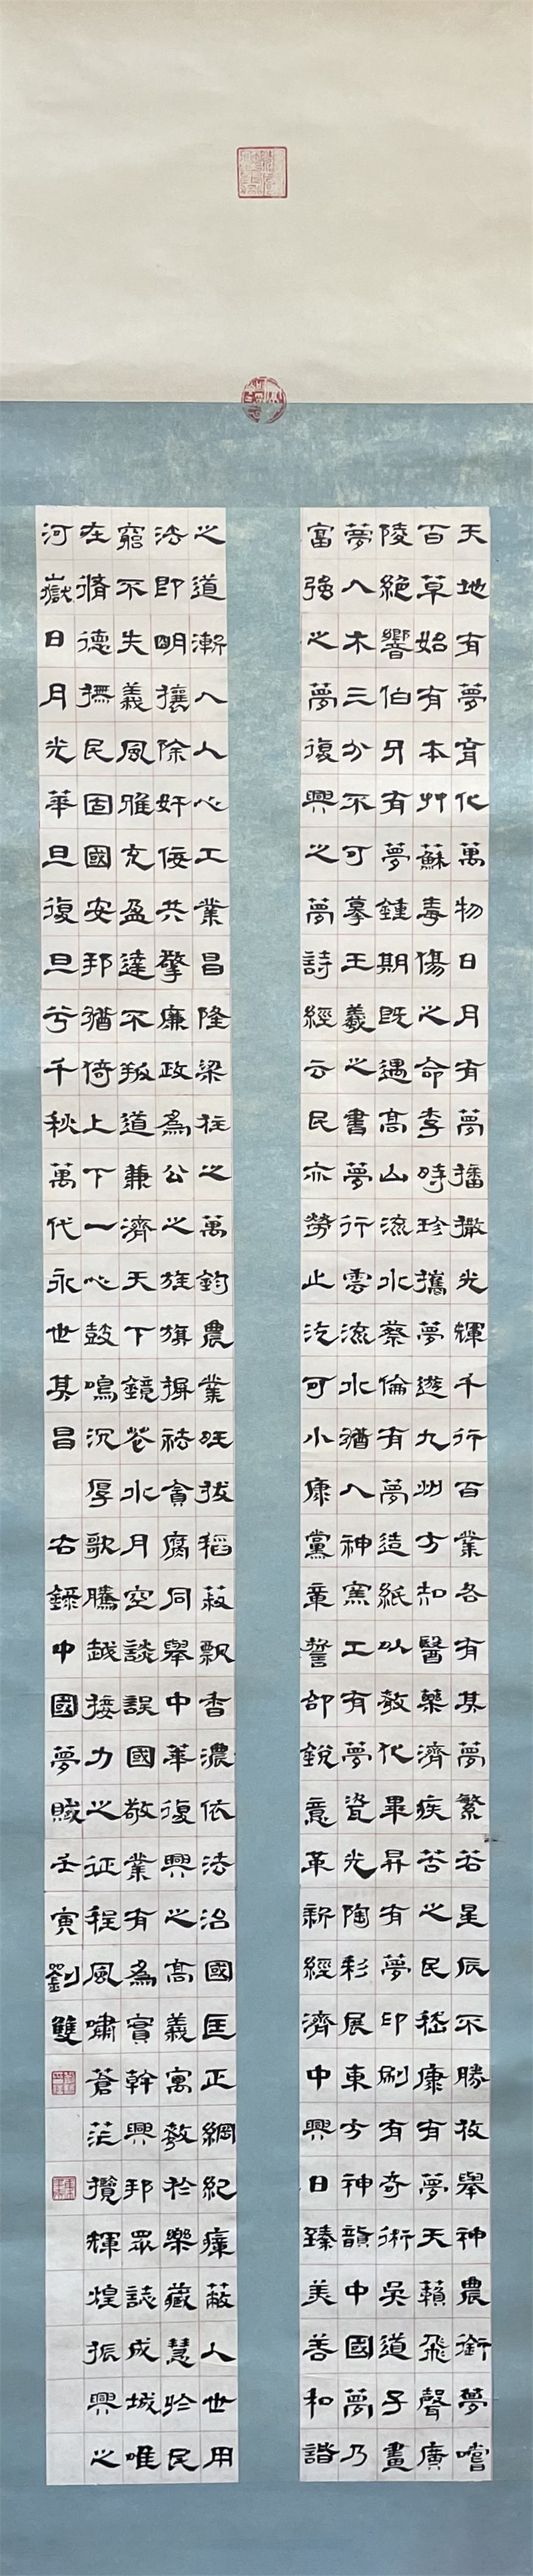 天地有夢育化萬物日月有夢播撒光輝千行百業各有其夢繁若星辰不勝枚舉神農銜夢嚐
百草始有本艸蘇毒傷之命李時珍攜夢遊九州方知醫藥濟疾苦之民嵇康有夢天籟飛聲廣
陵絕響伯牙有夢鍾期既遇高山流水蔡倫有夢造紙以教化畢昇有夢印刷有奇術吳道子畫
夢入木三分不可摹王羲之書夢行雲流水猶入神窯工有夢瓷光陶彩展東方神韻中國夢乃
富強之夢復興之夢詩經云民亦勞止汔可小康黨章誓部銳意革新經濟中興日臻美善和諧
之道漸入人心工業昌隆梁柱之萬鈞農業旺拔稻菽飄香濃依法治國匡正綱紀瘴蔽人世用
法即明攘除奸佞共擎廉政為公之旌旗摒祛貪腐同舉中華復興之高義寓教於樂藏慧於民
窮不失義風雅充盈達不叛道兼濟天下鏡花水月空談誤國敬業有為實幹興邦眾誌成城唯
在脩德撫民固國安邦猶倚上下一心鼓鳴沉厚歌騰越接力之征程風嘯蒼茫攬輝煌振興之
河嶽日月光華旦復旦兮千秋萬代永世其昌 右錄中國夢賦壬寅劉雙